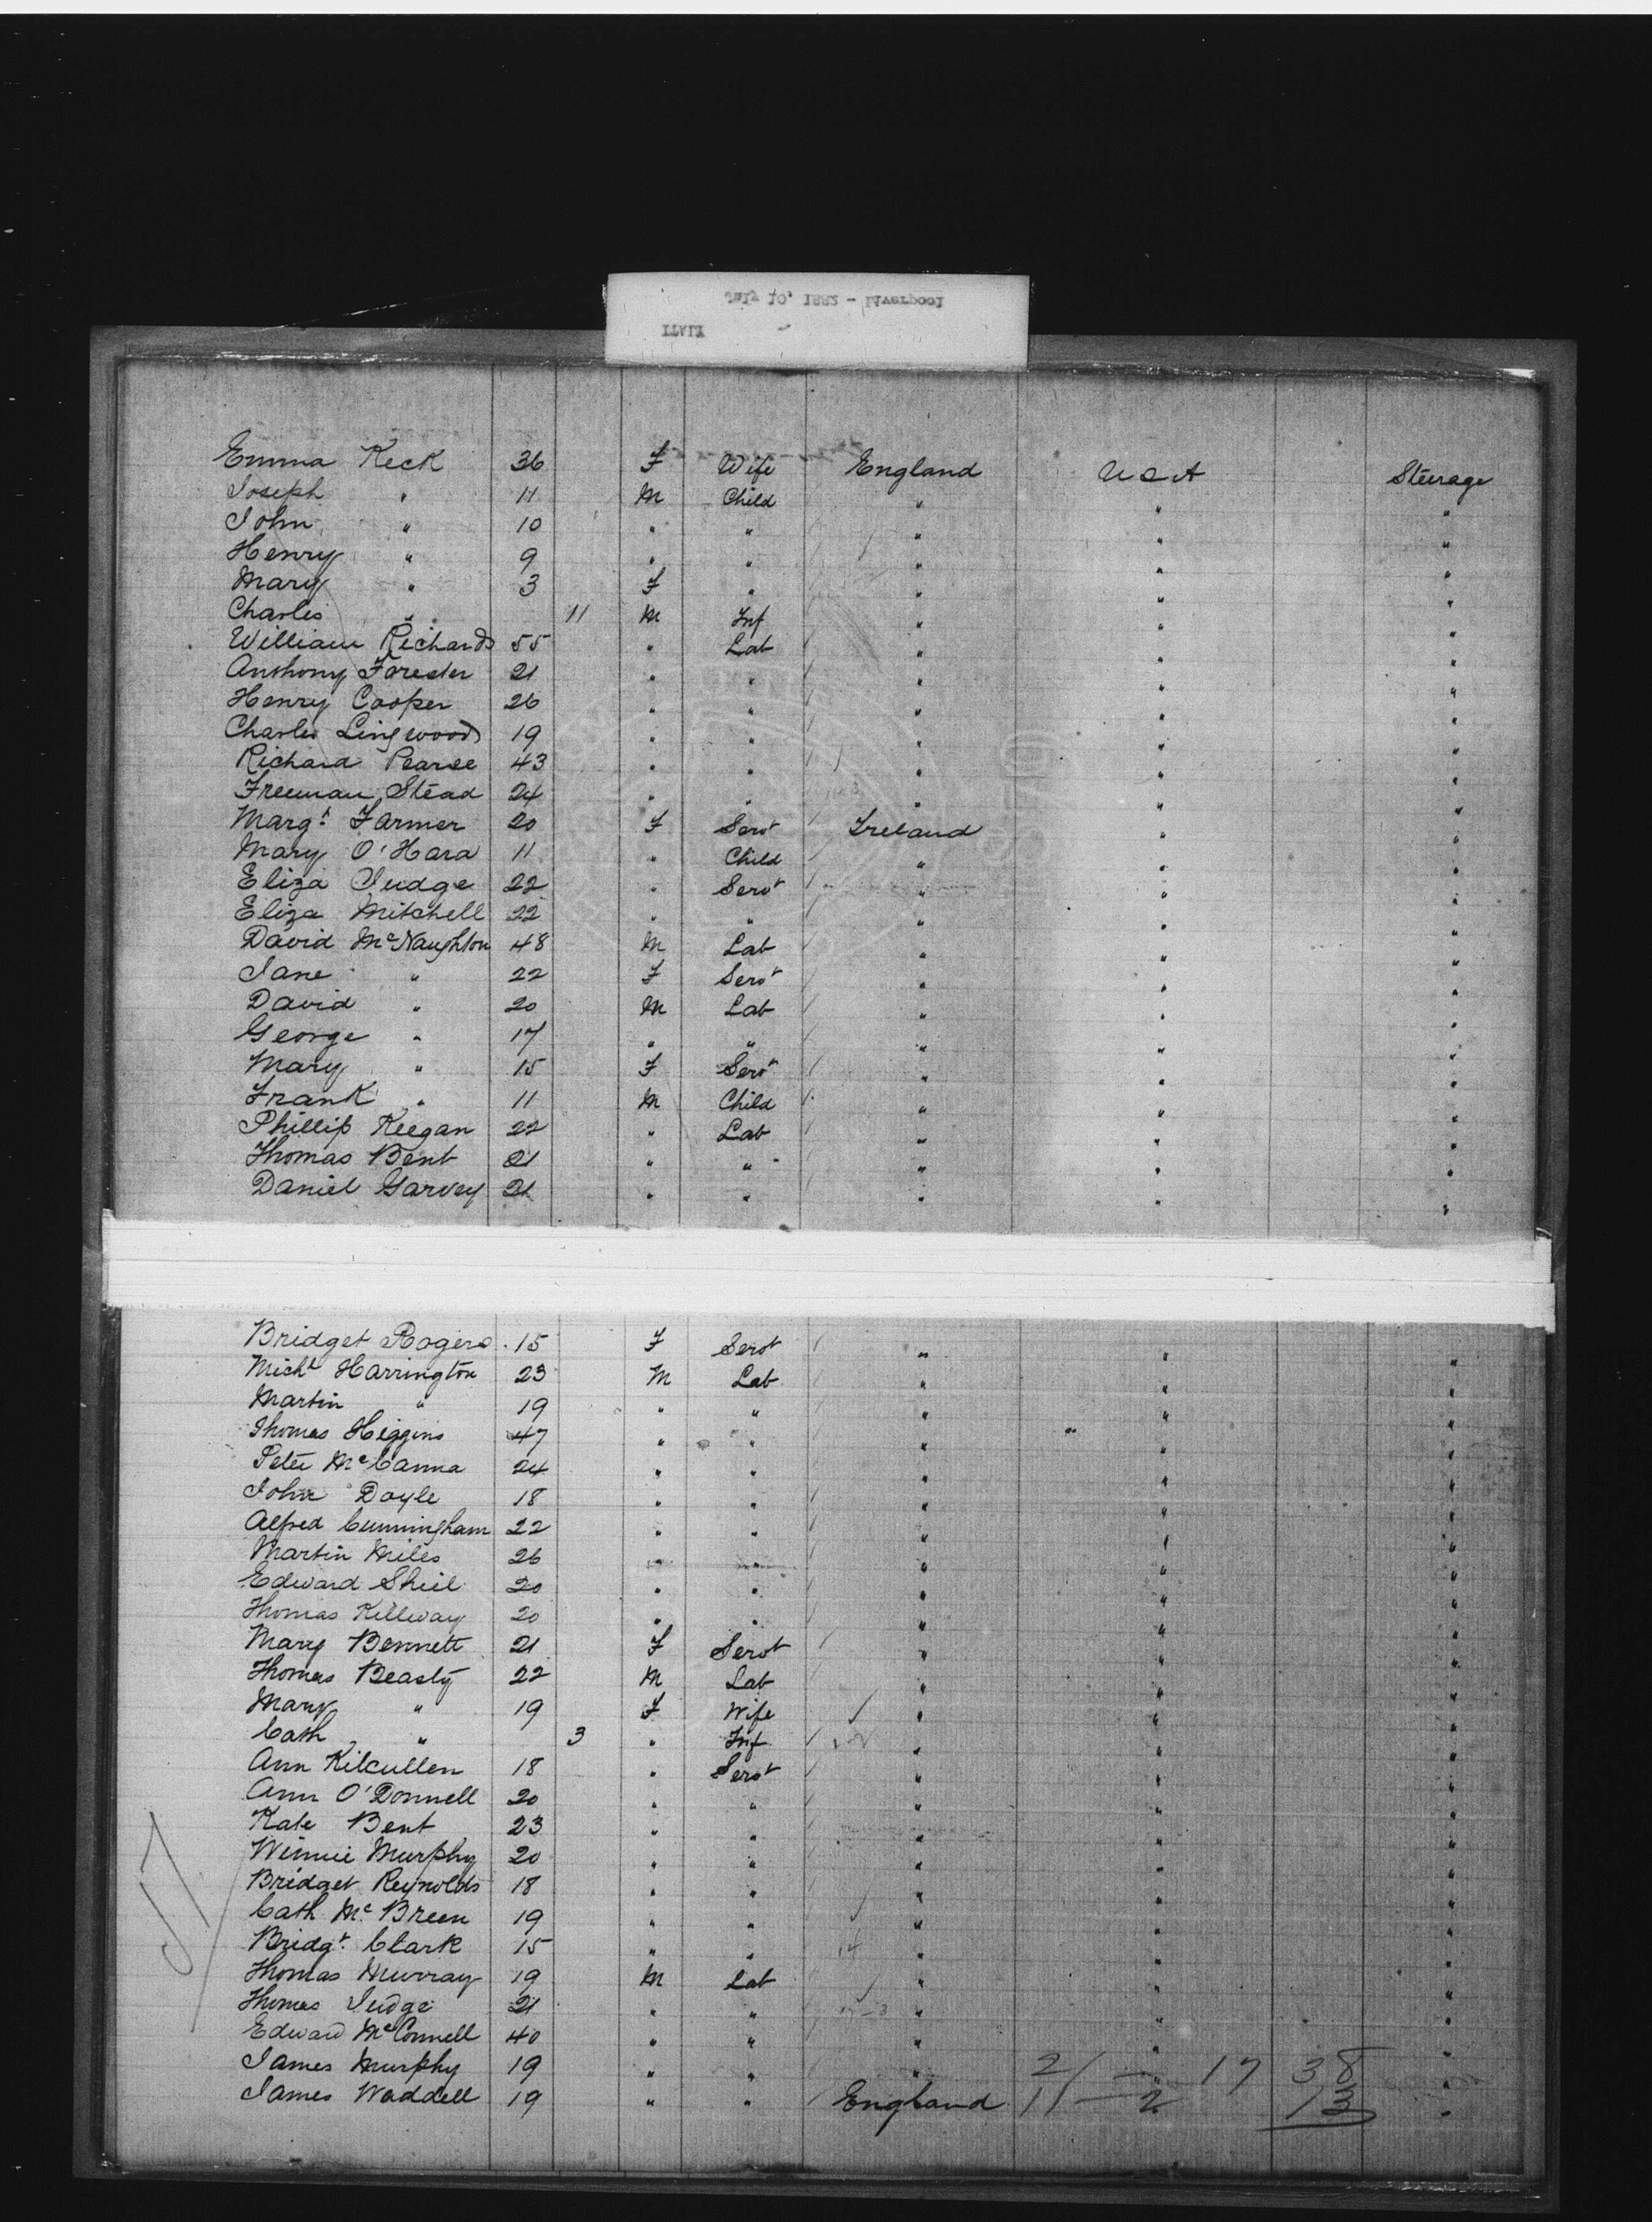 July 10, 1882 - Liverpool
Emma Keck 36 F Wife England U S A Steerage
Joseph " 11 M Child " " "
John " 10 " " " " "
Henry " 9 " " " " "
Mary " 3 F " " " "
Charles " 11 M Inf " " "
William Richards 55 " Lab " " "
Anthony Forester 21 " " " " "
Henry Cooper 26 " " " " "
Charles Lingwood 19 " " " " "
Richard Pearse 43 " " " " "
Freeman Stead 24 " " " " "
Margt. Farmer 20 F Servt Ireland " "
Mary O'Hara 11 " Child " " "
Eliza Judge 22 " Servt " " "
Eliza Mitchell 22 " " " " "
David McNaughton 48 M Lab " " "
Jane " 22 F Servt " " "
David " 20 M Lab " " "
George " 17 " " " " "
Mary " 15 F Servt " " "
Frank " 11 M Child " " "
Phillip Keegan 22 " Lab " " "
Thomas Bent 21 " " " " "
Daniel Garvey 21 " " " " "
Bridget Rogers 15 F Servt " " "
Michl Harrington 23 M Lab " " "
Martin " 19 " " " " "
Thomas Higgins 47 " " " " "
Peter McCanna 24 " " " " "
John Doyle 18 " " " " "
Alfred Cunningham 22 " " " " "
Martin Miles 26 " " " " "
Edward Sheil 20 " " " " "
Thomas Killway 20 " " " " "
Mary Bennett 21 F Servt " " "
Thomas Beasty 22 M Lab " " "
Mary " 19 F Wife " " "
Cath " 3 " Inf " " "
Ann Kilcullen 18 " Servt " " "
Ann O'Donnell 20 " " " " "
Kate Bent 23 " " " " "
Winnie Murphy 20 " " " " "
Bridget Reynolds 18 " " " " "
Cath McBreen 19 " " " " "
Bridgt. Clark 15 " " " " "
Thomas Murray 19 M Lab " " "
Thomas Judge 21 " " " " "
Edward McConnell 40 " " " " "
James Murphy 19 " " " 21 — " 17 38 "
James Waddell 19 " " England 11 — 2 13 "